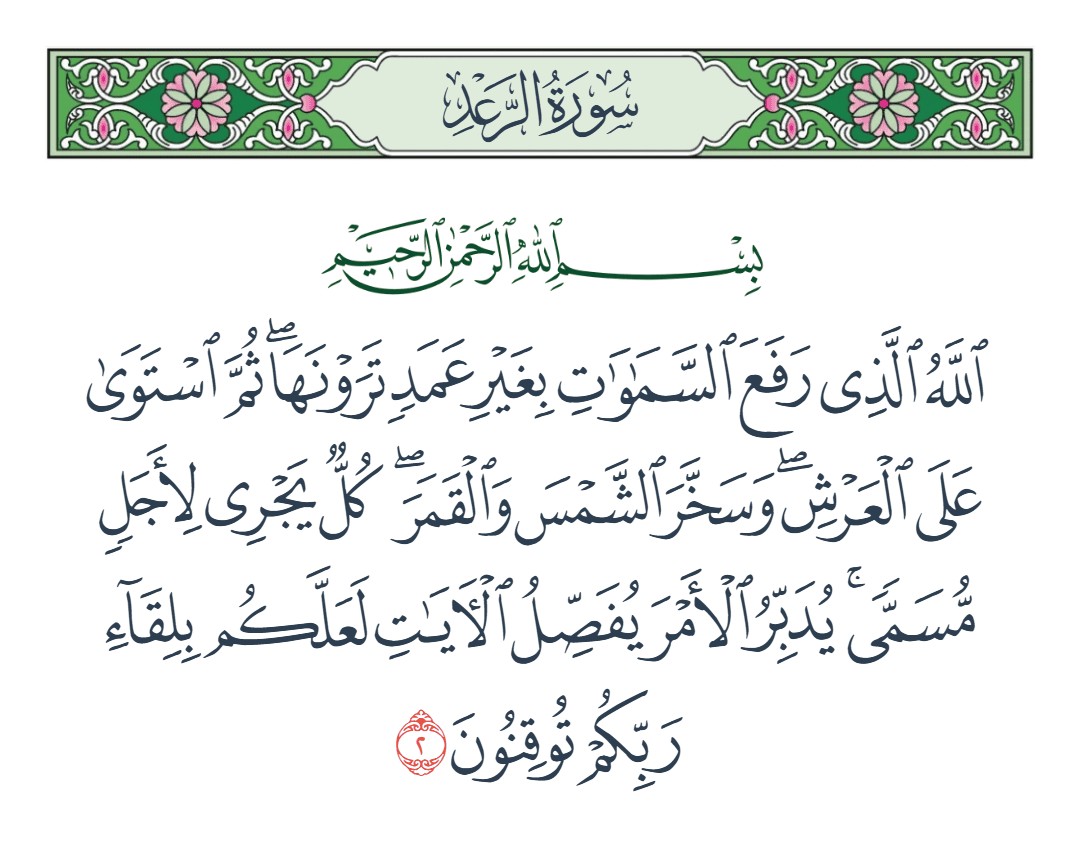 سُورَةُ الرَّعْدِ
بِسْمِ ٱللَّهِ ٱلرَّحْمَٰنِ ٱلرَّحِيمِ
ٱللَّهُ ٱلَّذِى رَفَعَ ٱلسَّمَٰوَٰتِ بِغَيْرِ عَمَدٍ تَرَوْنَهَا ۖ ثُمَّ ٱسْتَوَىٰ
عَلَى ٱلْعَرْشِ ۖ وَسَخَّرَ ٱلشَّمْسَ وَٱلْقَمَرَ ۖ كُلٌّ يَجْرِى لِأَجَلٍ
مُّسَمًّى ۚ يُدَبِّرُ ٱلْأَمْرَ يُفَصِّلُ ٱلْـَٔايَٰتِ لَعَلَّكُم بِلِقَآءِ
رَبِّكُمْ تُوقِنُونَ ٢